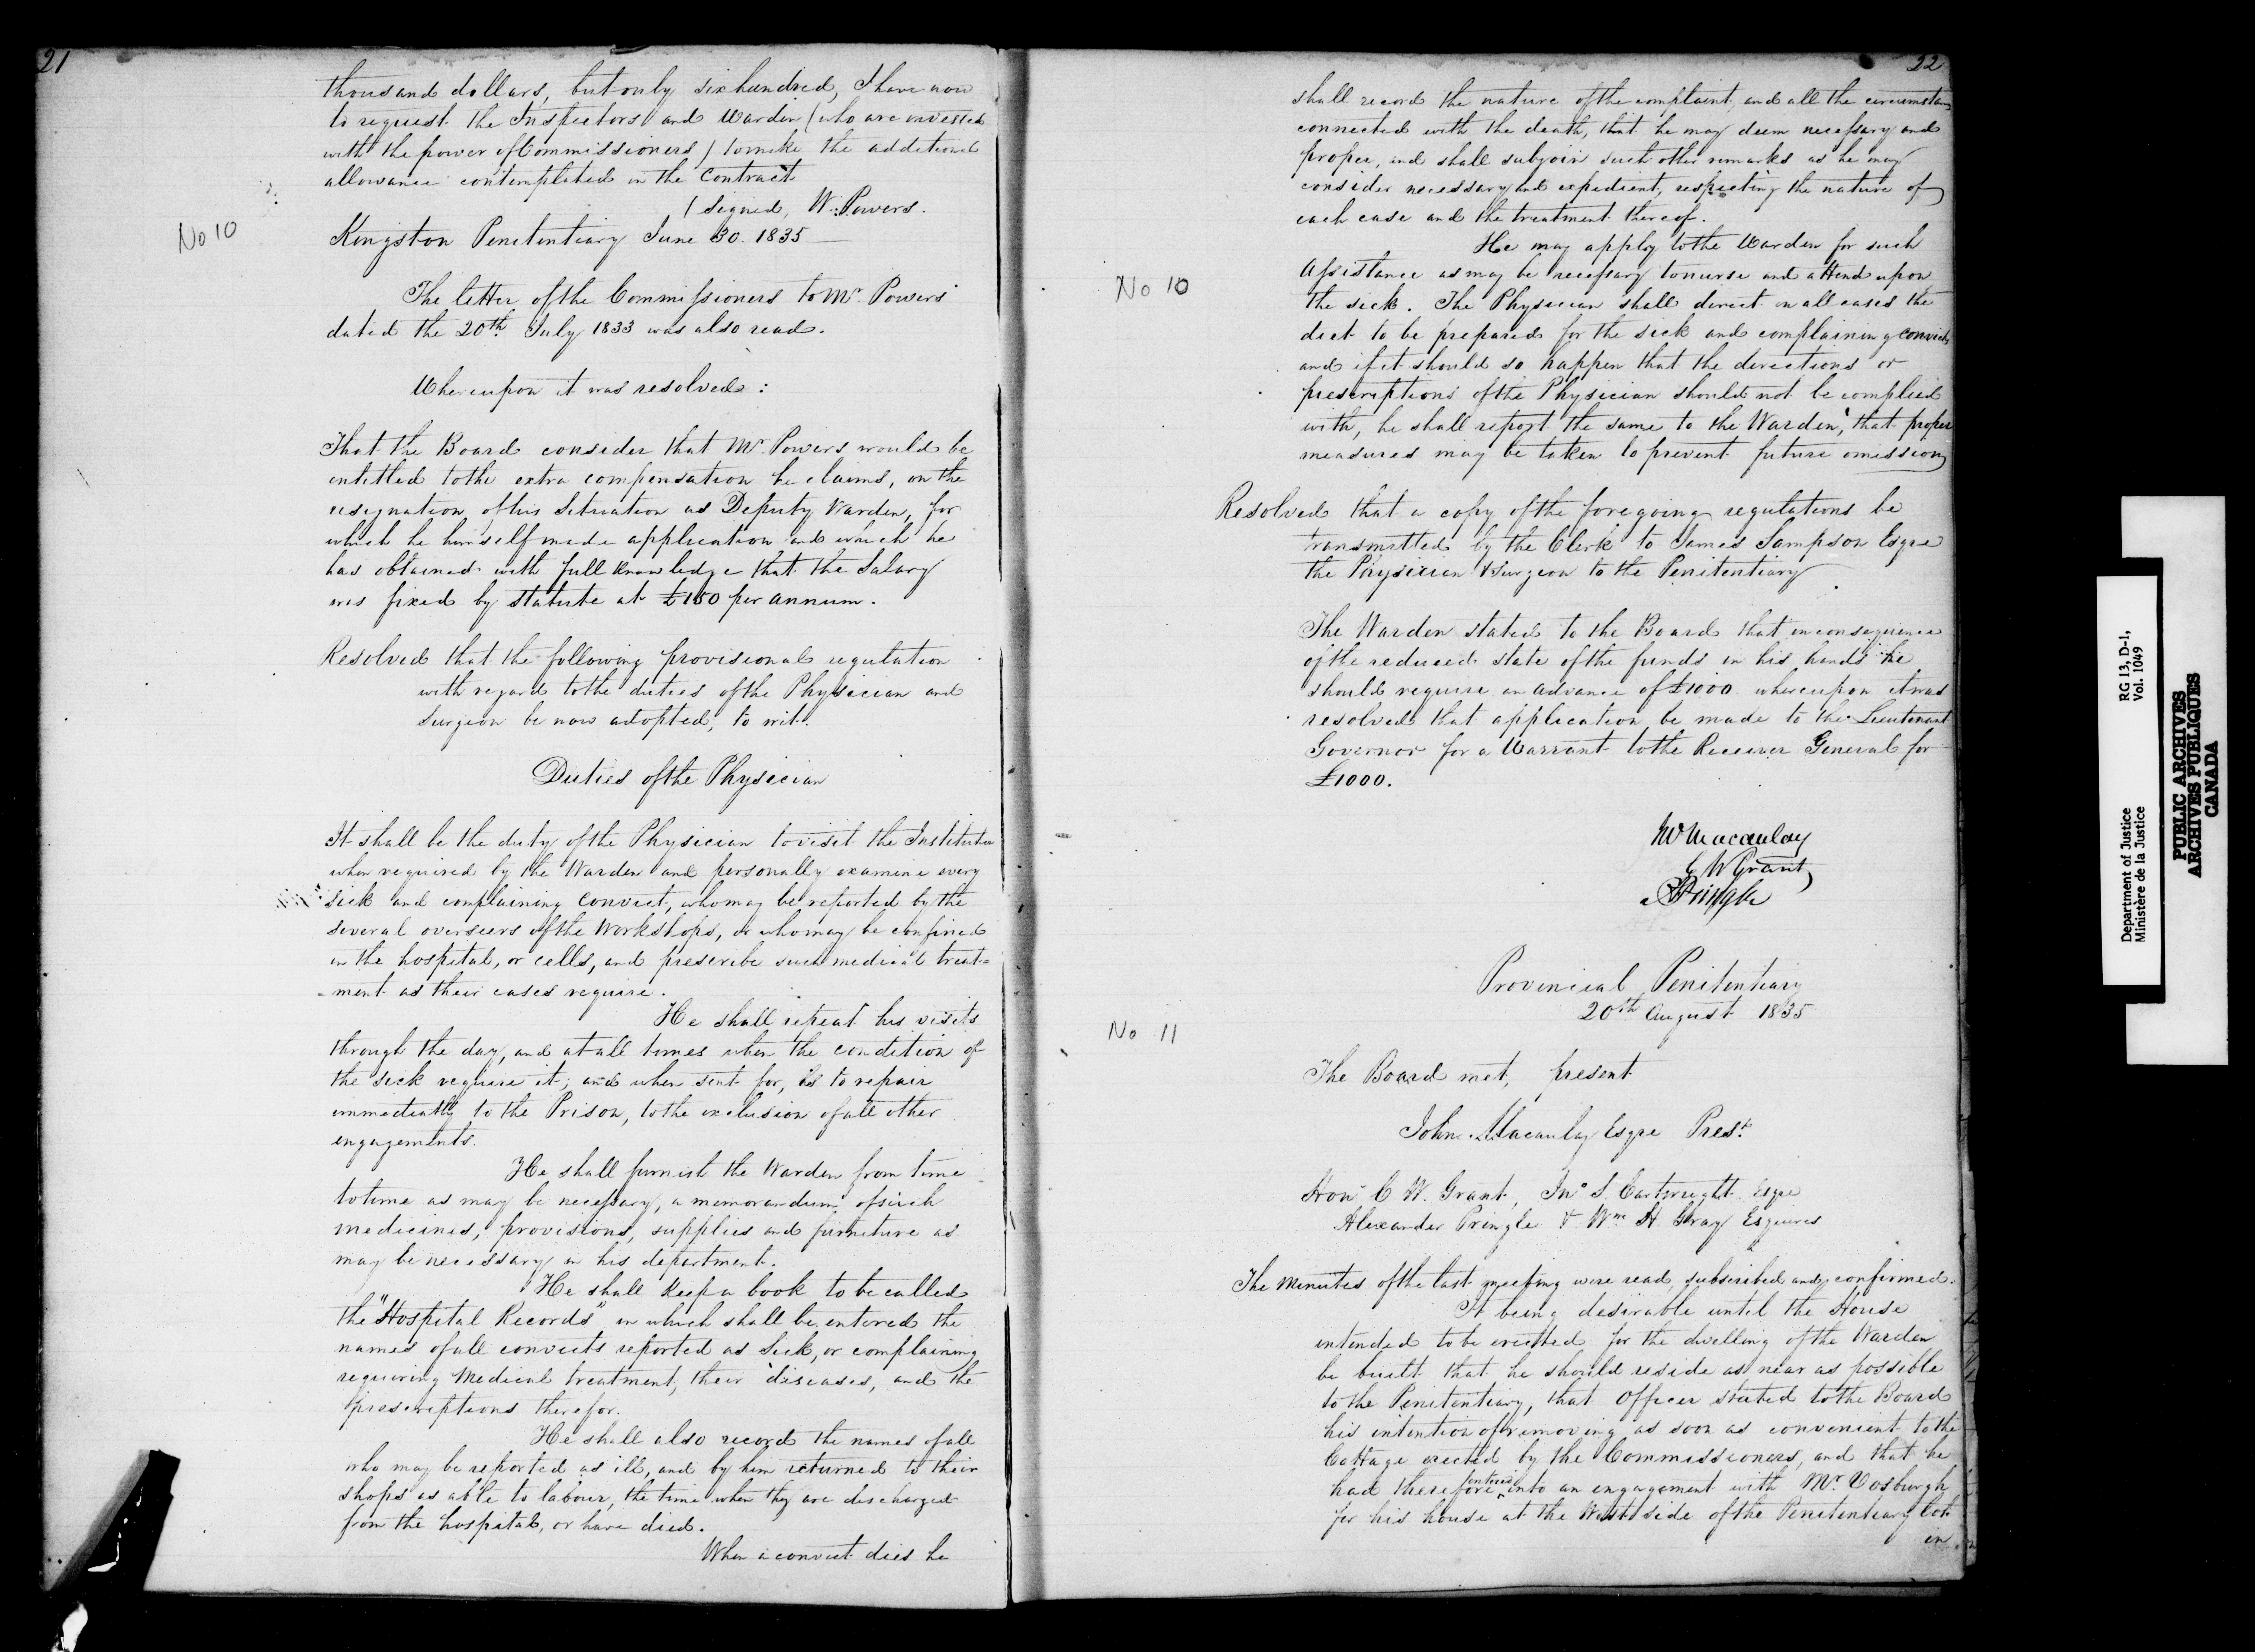 21
thousand dollars, but only six hundred, I have now
to request the Inspectors and Warden (who are invested
with the power of Commissioners) to make the additional
allowance contemplated in the Contract
(signed, W. Powers.
No 10
Kingston Penitentiary June 30. 1835
The letter of the Commissioners to Mr. Powers
dated the 20th July 1833 was also read.
Whereupon it was resolved :
That the Board consider that Mr Powers would be
entitled to the extra compensation he claims, on the
resignation of his Situation as Deputy Warden, for
which he himself made application and which he
has obtained with full knowledge that the Salary
was fixed by statute at £150 per annum.
Resolved that the following provisional regulation
with regard to the duties of the Physician and
Surgeon be now adopted, to wit.
Duties of the Physician
It shall be the duty of the Physician to visit the Institution
when required by the Warden and personally examine every
sick and complaining convict, who may be reported by the
several overseers of the Workshops, or who may be confined
in the hospital, or cells, and prescribe such medical treat=
-ment as their cases require.
He shall repeat his visits
through the day, and at all times when the condition of
the sick require it; and when sent for, is to repair
immediately to the Prison, to the exclusion of all other
engagements.
He shall furnish the Warden from time
to time as may be necessary, a memorandum of such
medicines, provisions, supplies and furniture as
may be necessary in his department.
He shall keep a book to be called
the "Hospital Records" in which shall be entered the
names of all convicts reported as Sick, or complaining
requiring Medical treatment, their diseases, and the
prescriptions therefor.
He shall also record the names of all
who may be reported as ill, and by him returned to their
shops as able to labour, the time when they are discharged
from the hospital, or have died.
When a convict dies he
22
shall record the nature of the complaint, and all the circumstan
connected with the death, that he may deem necessary and
proper, and shall subjoin such other remarks as he may
consider necessary and expedient, respecting the nature of
each case and the treatment thereof.
He may apply to the Warden for such
No 10
Assistance as may be necessary to nurse and attend upon
the sick. The Physician shall direct in all cases the
diet to be prepared for the sick and complaining convicts
and if it should so happen that the directions or
prescriptions of the Physician should not be complied
with, he shall report the same to the Warden, that proper
measures may be taken to prevent future omission
Resolved that a copy of the foregoing regulations be
transmitted by the Clerk to James Sampson Esqre
the Physician & Surgeon to the Penitentiary
The Warden stated to the Board that in consequence
of the reduced state of the funds in his hands he
should require an advance of £1000 whereupon it was
resolved that application be made to the Lieutenant
Governor for a Warrant to the Receiver General for
£1000.
Macaulay
C W Grant
A Pringle
Provincial Penitentiary
20th August 1835
No 11
The Board met, present
John Macaulay Esqre Prest.
Hon. C W. Grant, Jno S. Cartwright Esqre
Alexander Pringle & Wm H. Gray Esquires
The Minutes of the last meeting were read, subscribed and confirmed.
It being desirable until the House
intended to be erected for the dwelling of the Warden
be built that he should reside as near as possible
to the Penitentiary, that Officer stated to the Board
his intention of removing as soon as convenient to the
Cottage erected by the Commissioners, and that he
had therefore entered into an engagement with Mr. Vosburgh
for his house at the West side of the Penitentiary lot
in
Department of Justice
Ministère de la Justice
RG 13, D-1,
Vol. 1049
PUBLIC ARCHIVES
ARCHIVES PUBLIQUES
CANADA